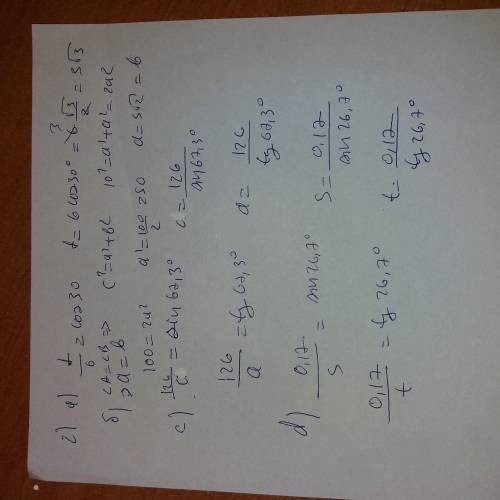 2) a) t/6 = cos 30 t = 6 cos 30° = 6 √3/2 = 3√3
б) ∠A = ∠B ⇒ c² = a² + b² 10² = a² + a² = 2a²
⇒ a = b
100 = 2a² a² = 100/2 = 50 a = 5√2 = b
c) 126/c = sin 67,3° c = 126/sin 67,3°
126/a = tg 67,3° a = 126/tg 67,3°
d) 0,17/s = sin 26,7° s = 0,17/sin 26,7°
0,17/t = tg 26,7° t = 0,17/tg 26,7°